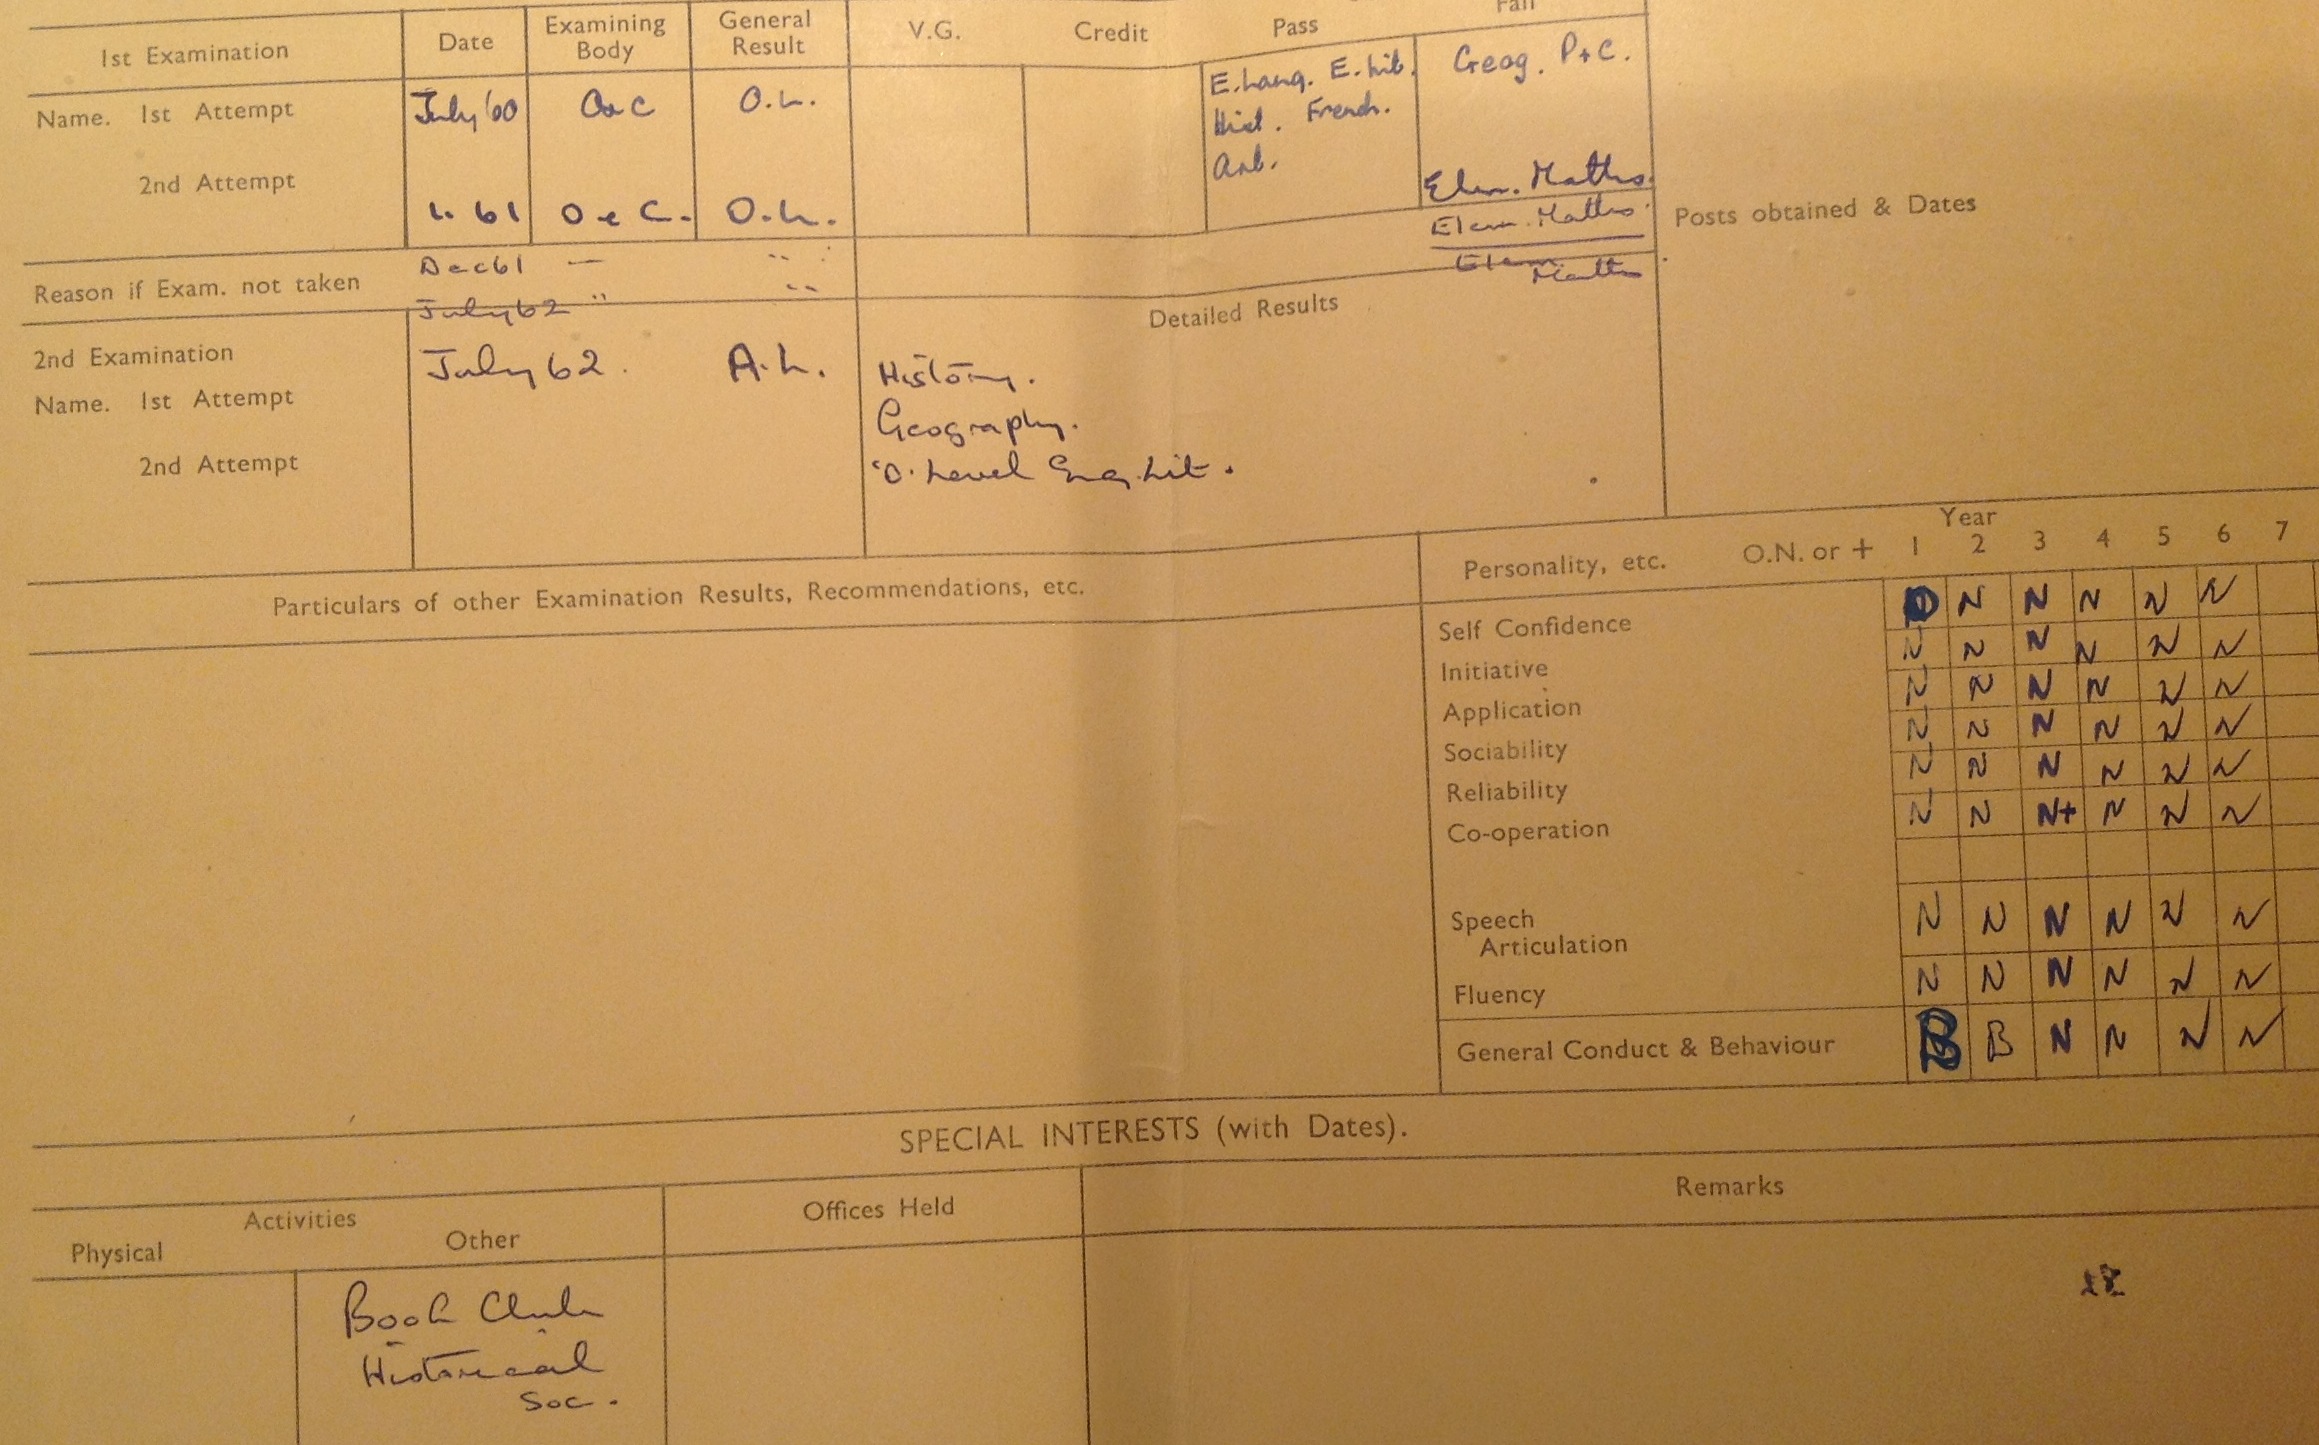 Fail
1st Examination Date Examining Body General Result V.G. Credit Pass
Name. 1st Attempt July 60 O & C O.L. E. Lang. E. Lit. Geog. P + C.
Hist. French.
Art.
2nd Attempt Elem. Maths.
61 O & C. O.L. Elem. Maths.
Posts obtained & Dates
Reason if Exam. not taken Dec 61 — " Elem. Maths
July 62 " "
Detailed Results
2nd Examination July 62. A.L. History.
Name. 1st Attempt Geography.
2nd Attempt 'O. Level Eng. Lit.
Particulars of other Examination Results, Recommendations, etc.
Year
Personality, etc. O.N. or + 1 2 3 4 5 6 7
Self Confidence O N N N N N
Initiative N N N N N N
Application N N N N N N
Sociability N N N N N N
Reliability N N N N N N
Co-operation N N N+ N N N
Speech
Articulation N N N N N N
Fluency N N N N N N
General Conduct & Behaviour B B N N N N
SPECIAL INTERESTS (with Dates).
Activities Offices Held Remarks
Physical Other
Book Club
Historical
Soc.